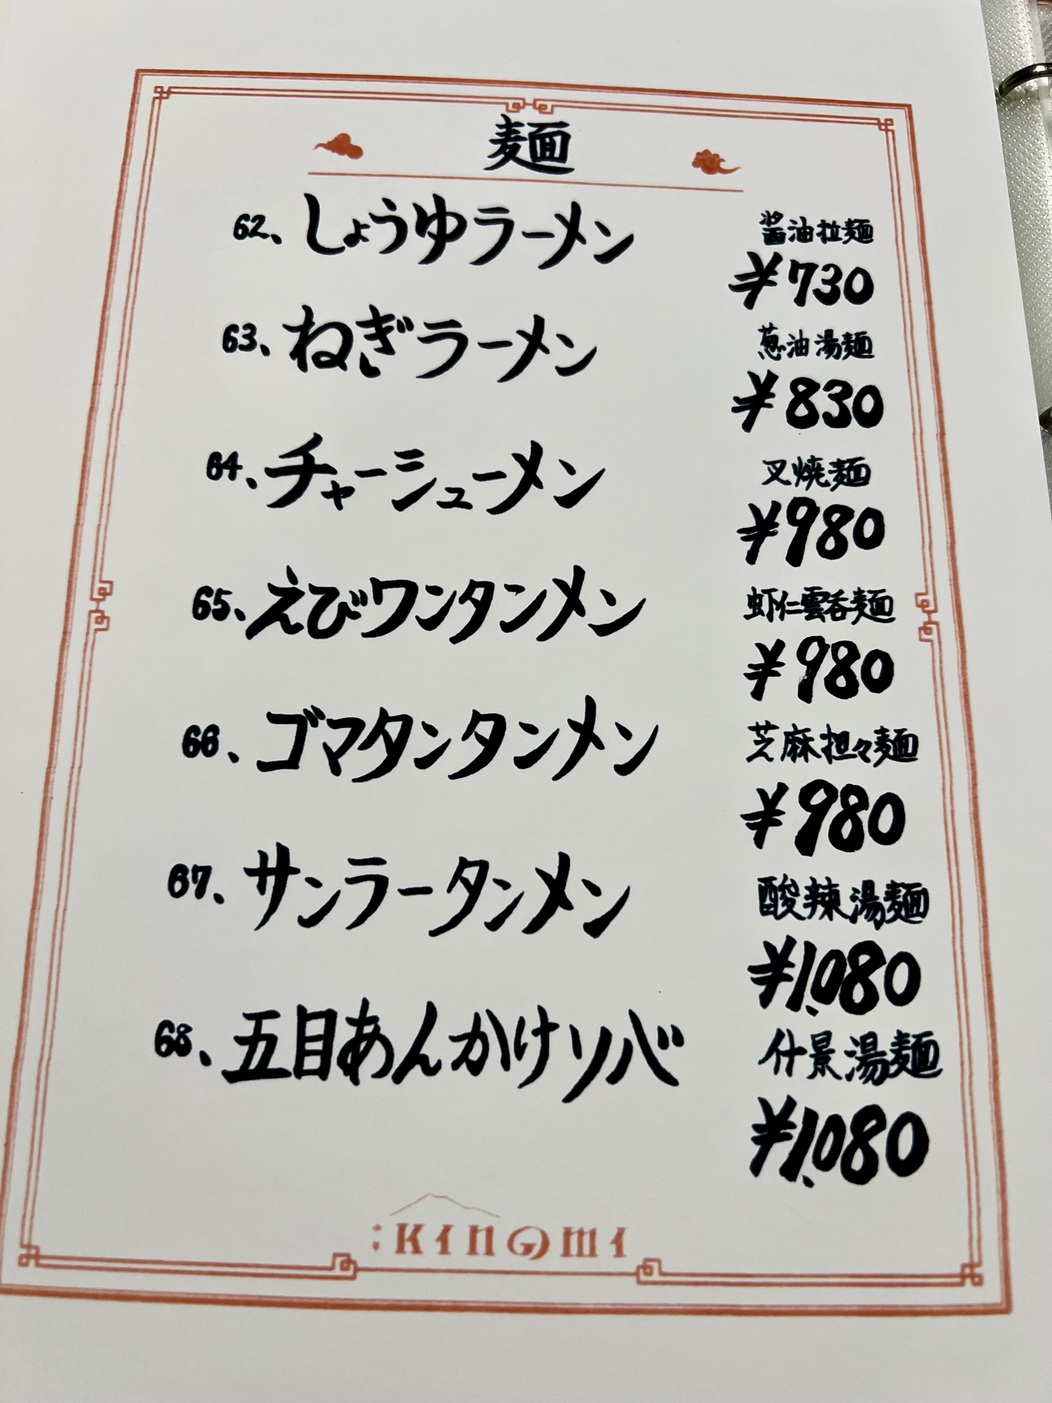 麺
62、しょうゆラーメン 醤油拉麺
¥730
63、ねぎラーメン 葱油湯麺
¥830
64、チャーシューメン 叉焼麺
¥980
65、えびワンタンメン 虾仁雲呑麺
¥980
66、ゴマタンタンメン 芝麻担々麺
¥980
67、サンラータンメン 酸辣湯麺
¥1,080
68、五目あんかけソバ 什景湯麺
¥1,080
KINOMI